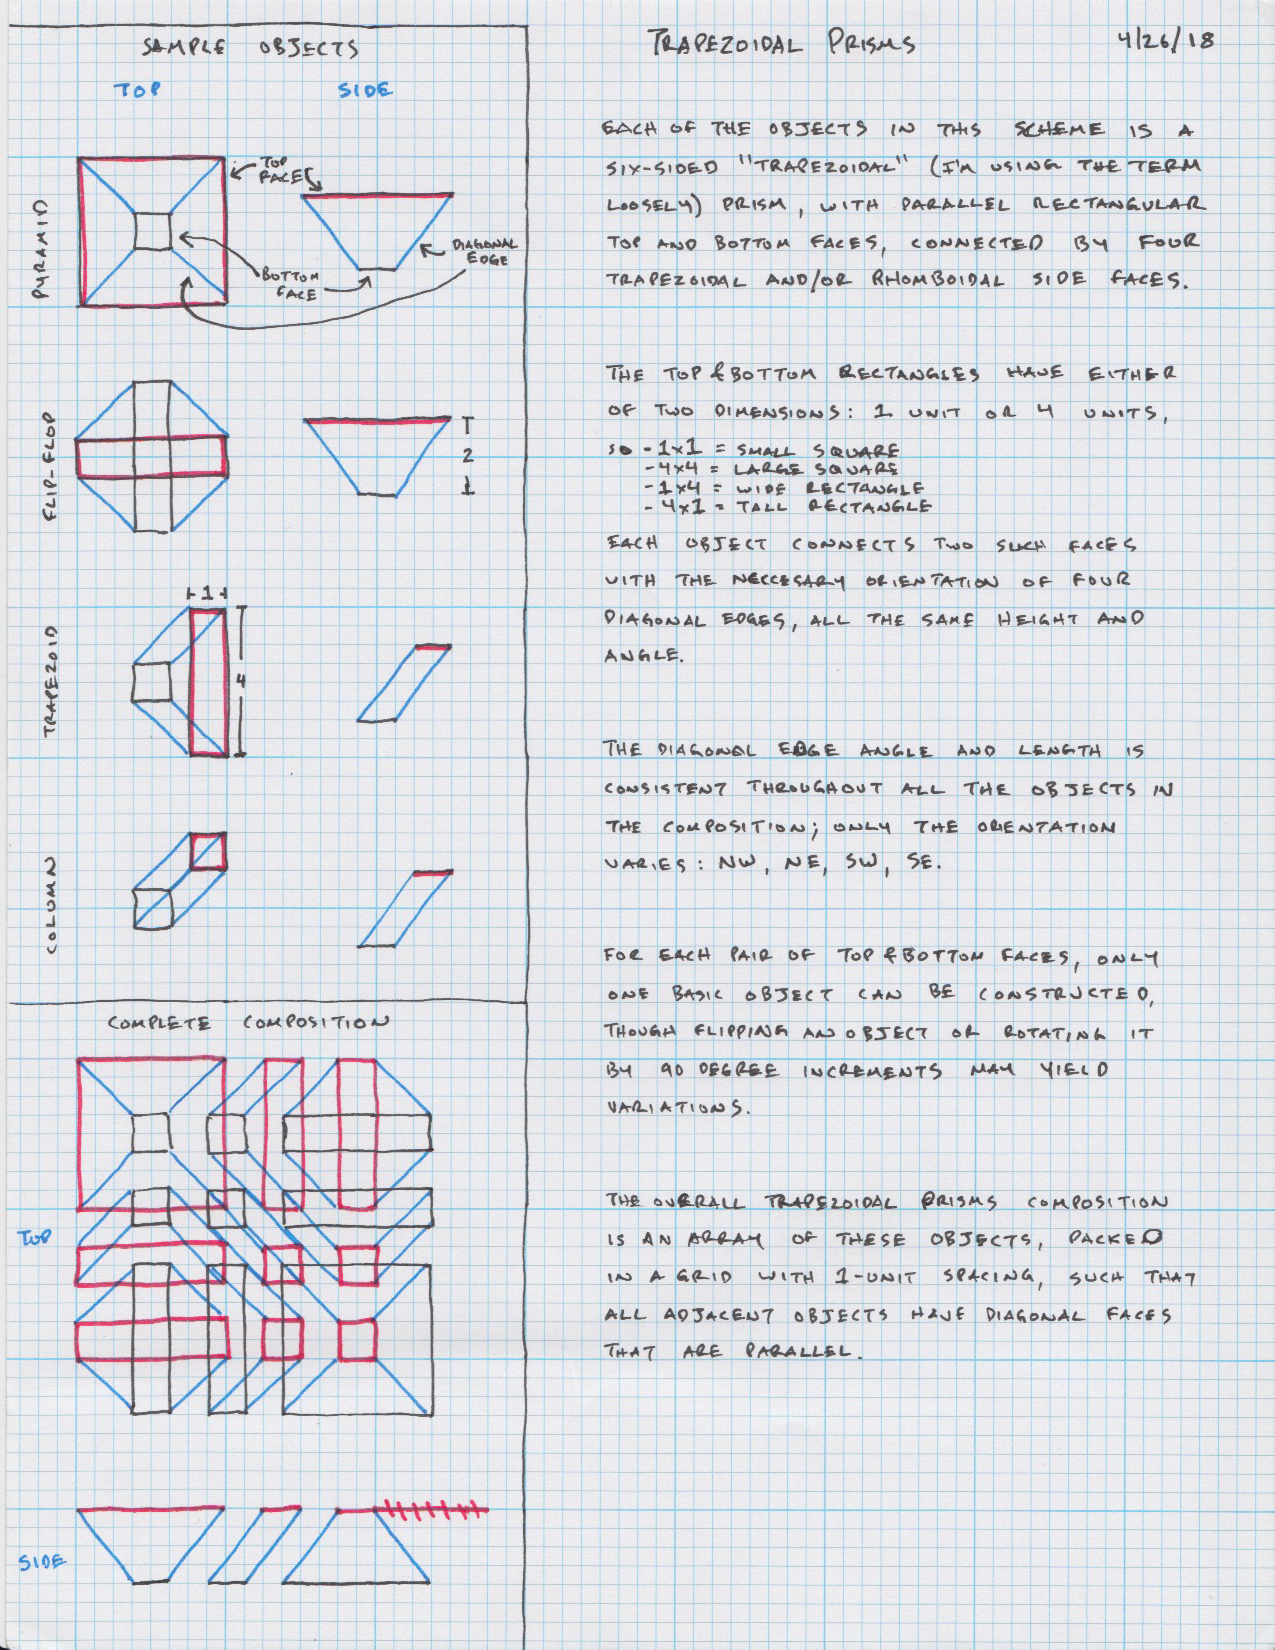 SAMPLE OBJECTS
TOP SIDE
TOP FACE
PYRAMID
BOTTOM FACE
DIAGONAL EDGE
FLIP-FLOP
2
TRAPEZOID
1
4
COLUMN
COMPLETE COMPOSITION
TOP
SIDE
TRAPEZOIDAL PRISMS 4/26/18
EACH OF THE OBJECTS IN THIS SCHEME IS A
SIX-SIDED "TRAPEZOIDAL" (I'M USING THE TERM
LOOSELY) PRISM, WITH PARALLEL RECTANGULAR
TOP AND BOTTOM FACES, CONNECTED BY FOUR
TRAPEZOIDAL AND/OR RHOMBOIDAL SIDE FACES.
THE TOP & BOTTOM RECTANGLES HAVE EITHER
OF TWO DIMENSIONS: 1 UNIT OR 4 UNITS,
SO - 1x1 = SMALL SQUARE
- 4x4 = LARGE SQUARE
- 1x4 = WIDE RECTANGLE
- 4x1 = TALL RECTANGLE
EACH OBJECT CONNECTS TWO SUCH FACES
WITH THE NECCESARY ORIENTATION OF FOUR
DIAGONAL EDGES, ALL THE SAME HEIGHT AND
ANGLE.
THE DIAGONAL EDGE ANGLE AND LENGTH IS
CONSISTENT THROUGHOUT ALL THE OBJECTS IN
THE COMPOSITION; ONLY THE ORIENTATION
VARIES: NW, NE, SW, SE.
FOR EACH PAIR OF TOP & BOTTOM FACES, ONLY
ONE BASIC OBJECT CAN BE CONSTRUCTED,
THOUGH FLIPPING AN OBJECT OR ROTATING IT
BY 90 DEGREE INCREMENTS MAY YIELD
VARIATIONS.
THE OVERALL TRAPEZOIDAL PRISMS COMPOSITION
IS AN ARRAY OF THESE OBJECTS, PACKED
IN A GRID WITH 1-UNIT SPACING, SUCH THAT
ALL ADJACENT OBJECTS HAVE DIAGONAL FACES
THAT ARE PARALLEL.